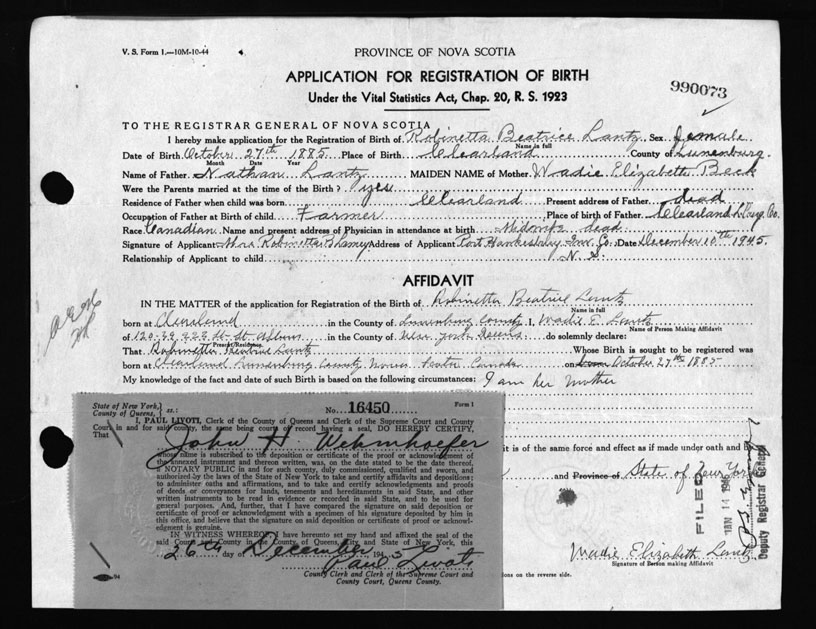 V. S. Form 1.—10M-10-44
PROVINCE OF NOVA SCOTIA
APPLICATION FOR REGISTRATION OF BIRTH
Under the Vital Statistics Act, Chap. 20, R. S. 1923
990073
TO THE REGISTRAR GENERAL OF NOVA SCOTIA
I hereby make application for the Registration of Birth of Robinetta Beatrice Lantz Sex female
Name in full
Date of Birth October 27th 1885 Place of Birth Clearland County of Lunenburg.
Month Date Year
Name of Father Nathan Lantz MAIDEN NAME of Mother Wadie Elizabeth Beck
Were the Parents married at the time of Birth? yes
Residence of Father when child was born Clearland Present address of Father dead
Occupation of Father at Birth of child Farmer Place of birth of Father Clearland Co.
Race Canadian Name and present address of Physician in attendance at birth dead
Signature of Applicant Mrs Robinetta Address of Applicant Port Hawkesbury Inv. Co. Date December 10th 1945.
Relationship of Applicant to child N. S.
AFFIDAVIT
IN THE MATTER of the application for Registration of the Birth of Robinetta Beatrice Lantz
Name in full
born at Clearland in the County of Lunenburg County I, Wadie E. Lantz
Name of Person Making Affidavit
of in the County of New York Queens do solemnly declare:
Present Residence
That Robinetta Beatrice Lantz Whose Birth is sought to be registered was
born at Clearland Lunenburg County Nova Scotia Canada on October 27th 1885
My knowledge of the fact and date of such Birth is based on the following circumstances: I am her mother
State of New York,
County of Queens, } ss.:
No. 16450
Form 1
I, PAUL LIVOTI, Clerk of the County of Queens and Clerk of the Supreme Court and County
Court in and for said county, the same being courts of record having a seal, DO HEREBY CERTIFY,
That
John H. Wehmhoefer
whose name is subscribed to the deposition or certificate of the proof or acknowledgment of
the annexed instrument and thereon written, was, on the date stated to be the date thereof,
a NOTARY PUBLIC in and for such county, duly commissioned, qualified and sworn, and
authorized by the laws of the State of New York to take and certify affidavits and depositions;
to administer oaths and affirmations, and to take and certify acknowledgments and proofs
of deeds or conveyances for lands, tenements and hereditaments in said State, and other
written instruments to be read in evidence or recorded in said State, and to be used for
general purposes. And, further, that I have compared the signature on said deposition or
certificate of proof or acknowledgment with a specimen of his signature deposited by him in
this office, and believe that the signature on said deposition or certificate of proof or acknowl-
edgment is genuine.
IN WITNESS WHEREOF, I have hereunto set my hand and affixed the seal of the
said County and County in the County of Queens, City and State of New York, this
26th day of December 1945
Paul Livoti
County Clerk and Clerk of the Supreme Court and
County Court, Queens County.
94
it is of the same force and effect as if made under oath and
and Province of State of New York
FILED
JAN 11 1946
Deputy Registrar General
Wadie Elizabeth Lantz
Signature of Person making Affidavit
ions on the reverse side.